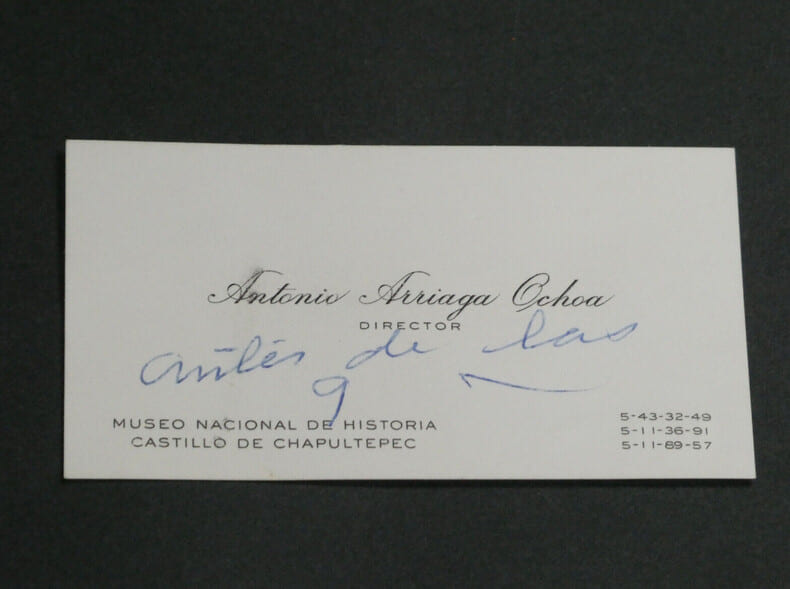 Antonio Arriaga Ochoa
DIRECTOR
antes de las
9
MUSEO NACIONAL DE HISTORIA
CASTILLO DE CHAPULTEPEC
5-43-32-49
5-11-36-91
5-11-89-57